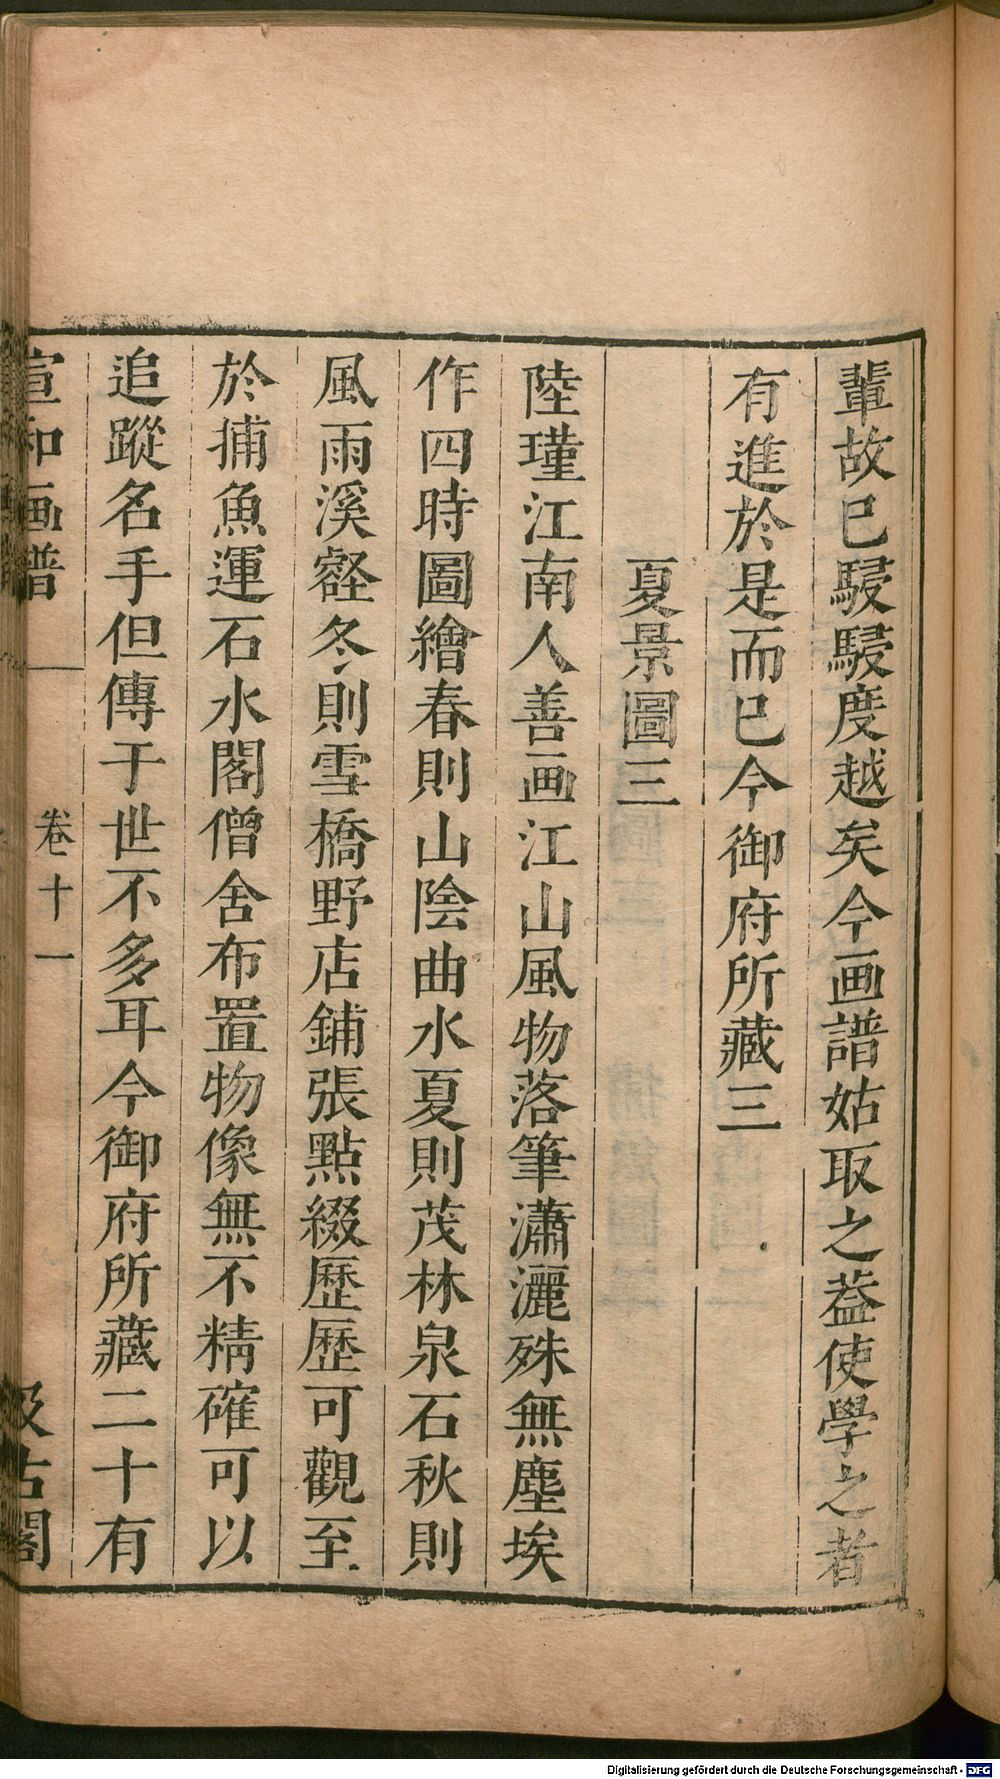 輩故已駸駸度越矣今画譜姑取之葢使學之者
有進於是而已今御府所藏三
夏景圖三
陸瑾江南人善画江山風物落筆瀟灑殊無塵埃
作四時圖繪春則山陰曲水夏則茂林泉石秋則
風雨溪壑冬則雪橋野店鋪張點綴歷歷可觀至
於捕魚運石水閣僧舍布置物像無不精確可以
追蹤名手但傳于世不多耳今御府所藏二十有
宣和画譜 卷十一 汲古閣
Digitalisierung gefördert durch die Deutsche Forschungsgemeinschaft - DFG